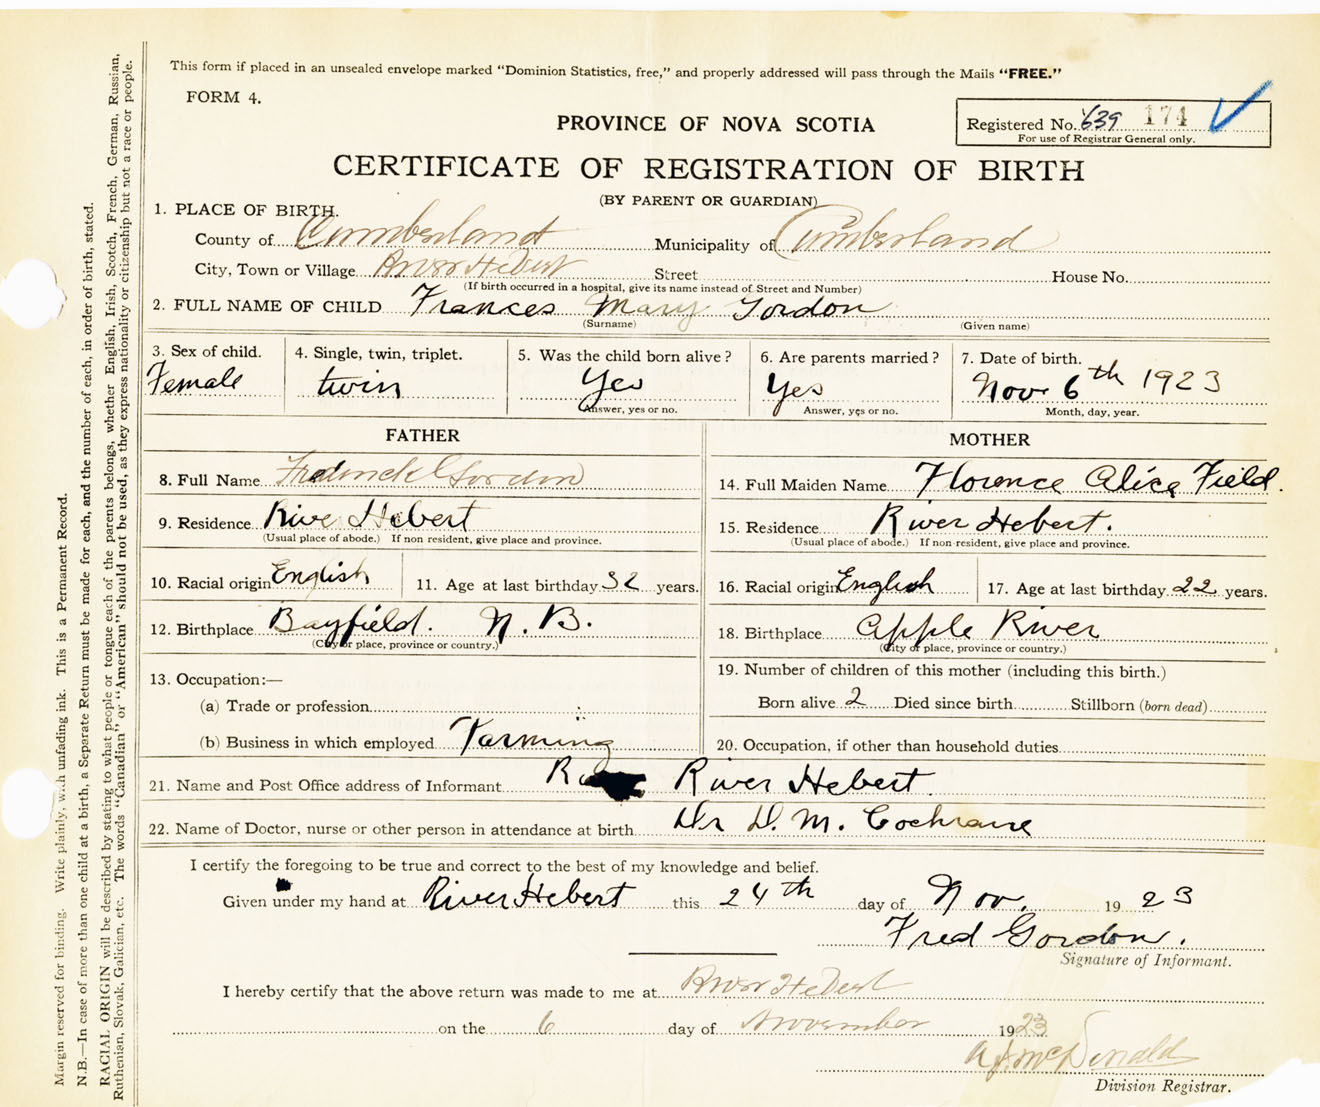 This form if placed in an unsealed envelope marked "Dominion Statistics, free," and properly addressed will pass through the Mails "FREE."
FORM 4.
Registered No. 639 174
For use of Registrar General only.
PROVINCE OF NOVA SCOTIA
CERTIFICATE OF REGISTRATION OF BIRTH
(BY PARENT OR GUARDIAN)
1. PLACE OF BIRTH.
County of Cumberland Municipality of Cumberland
City, Town or Village River Hebert Street House No.
(If birth occurred in a hospital, give its name instead of Street and Number)
2. FULL NAME OF CHILD Frances Mary Gordon
(Surname) (Given name)
3. Sex of child. 4. Single, twin, triplet. 5. Was the child born alive? 6. Are parents married? 7. Date of birth.
Female twin Yes Yes Nov 6th 1923
Answer, yes or no. Answer, yes or no. Month, day, year.
FATHER
8. Full Name Frederick Gordon
9. Residence River Hebert
(Usual place of abode.) If non resident, give place and province.
10. Racial origin English 11. Age at last birthday 32 years.
12. Birthplace Bayfield. N.B.
(City or place, province or country.)
13. Occupation:—
(a) Trade or profession
(b) Business in which employed Farming
MOTHER
14. Full Maiden Name Florence Alice Field.
15. Residence River Hebert.
(Usual place of abode.) If non-resident, give place and province.
16. Racial origin English 17. Age at last birthday 22 years.
18. Birthplace Apple River
(City or place, province or country.)
19. Number of children of this mother (including this birth.)
Born alive 2 Died since birth Stillborn (born dead)
20. Occupation, if other than household duties
21. Name and Post Office address of Informant River Hebert.
22. Name of Doctor, nurse or other person in attendance at birth Dr D. M. Cochrane
I certify the foregoing to be true and correct to the best of my knowledge and belief.
Given under my hand at River Hebert this 24th day of Nov. 1923
Fred Gordon.
Signature of Informant.
I hereby certify that the above return was made to me at River Hebert
on the 6 day of November 1923
McDonald
Division Registrar.
Margin reserved for binding. Write plainly, with unfading ink. This is a Permanent Record.
N.B.—In case of more than one child at a birth, a Separate Return must be made for each, and the number of each, in order of birth, stated.
RACIAL ORIGIN will be described by stating to what people or tongue each of the parents belongs, whether English, Irish, Scotch, French, German, Russian,
Ruthenian, Slovak, Galician, etc. The words "Canadian" or "American" should not be used, as they express nationality or citizenship but not a race or people.